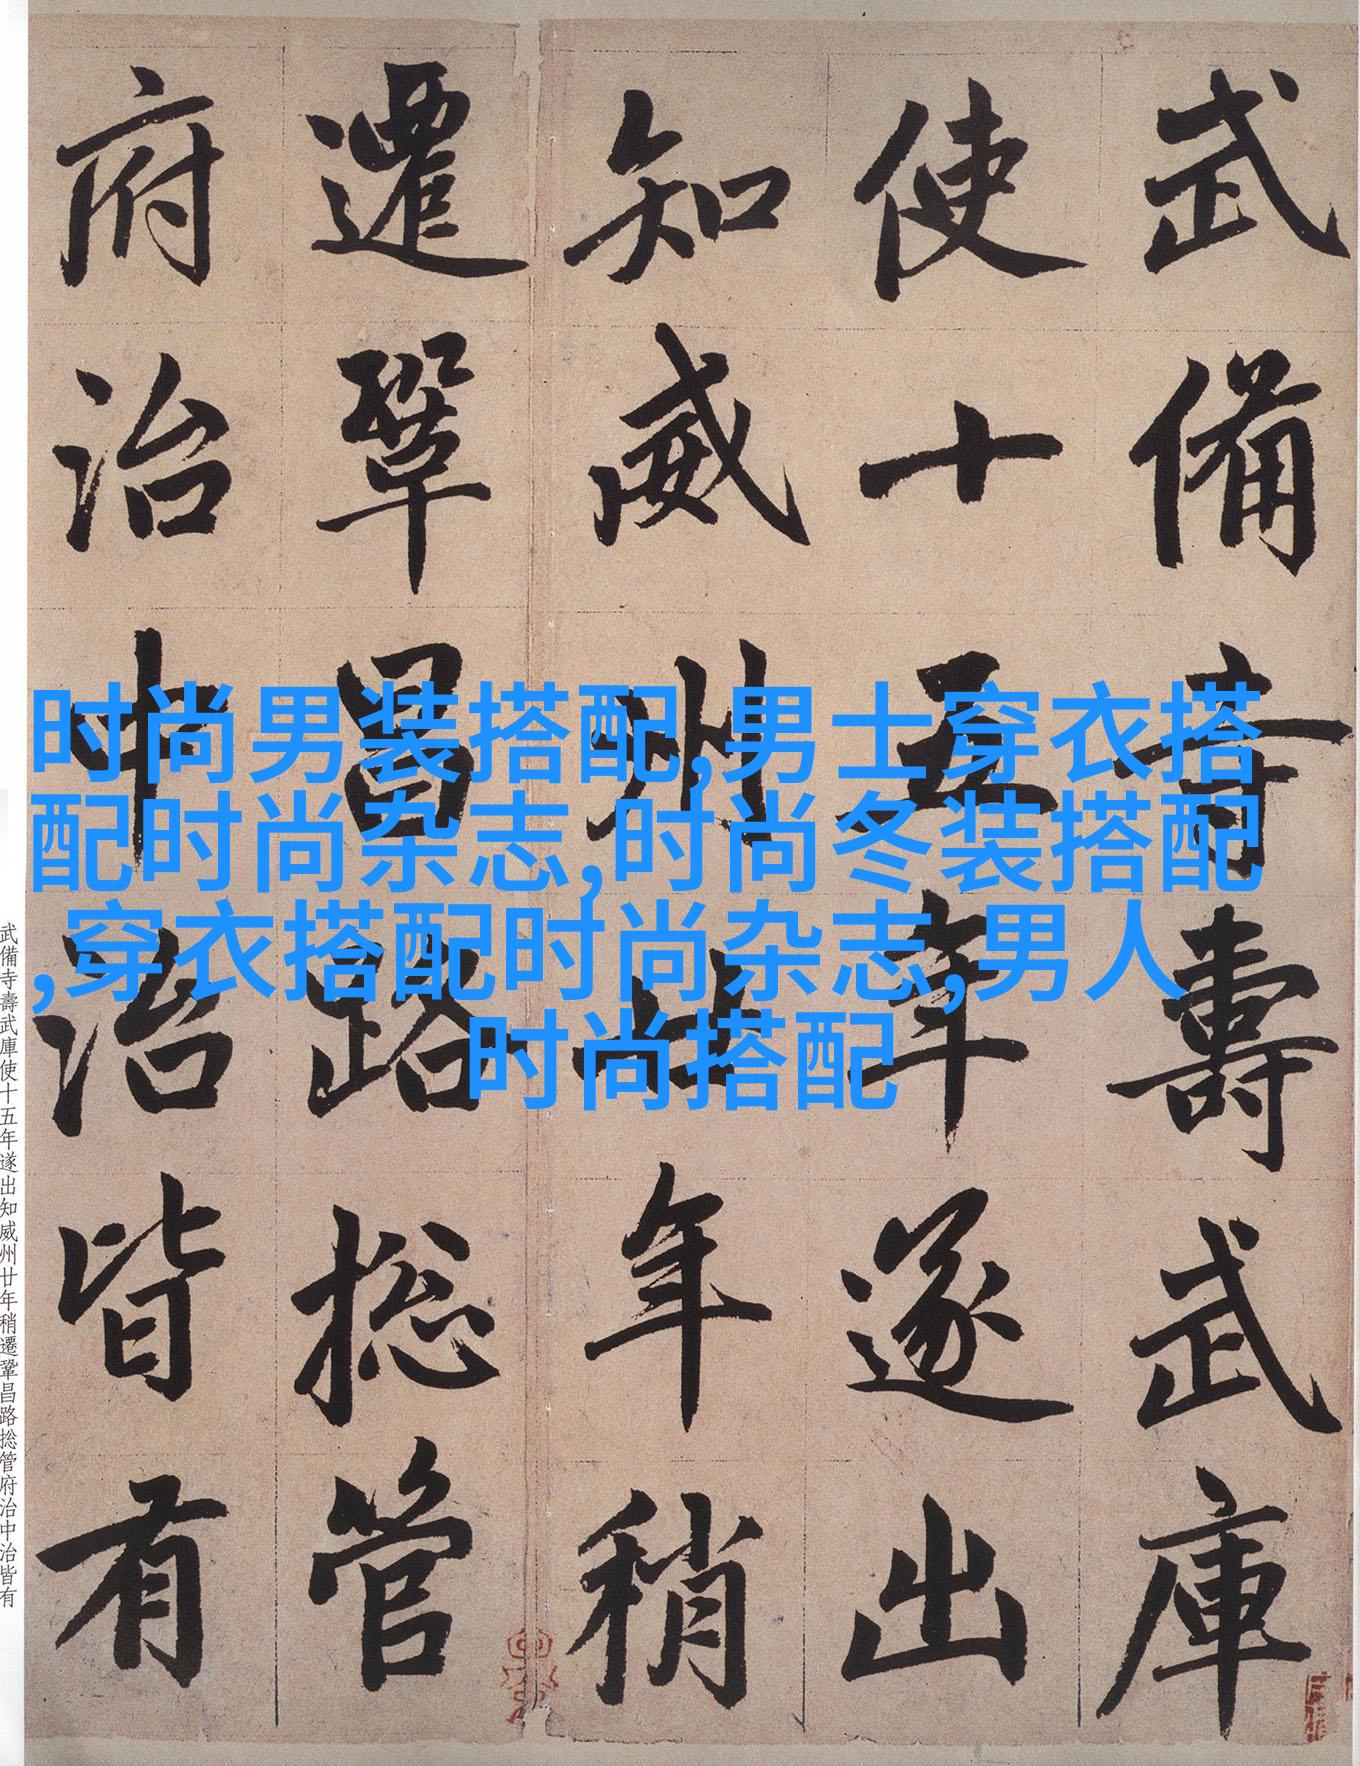 武備寺壽武庫
使十五年遂出
知威州廿年稍
遷鞏昌路捴管
府治中治皆有
时尚男装搭配,男士穿衣搭
配时尚杂志,时尚冬装搭配
,穿衣搭配时尚杂志,男人
时尚搭配
武備寺壽武庫使十五年遂出知威州廿年稍遷鞏昌路捴管府治中治皆有